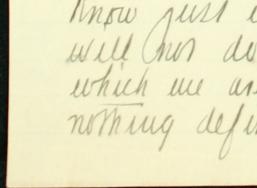 Know just
will not do
which we
nothing